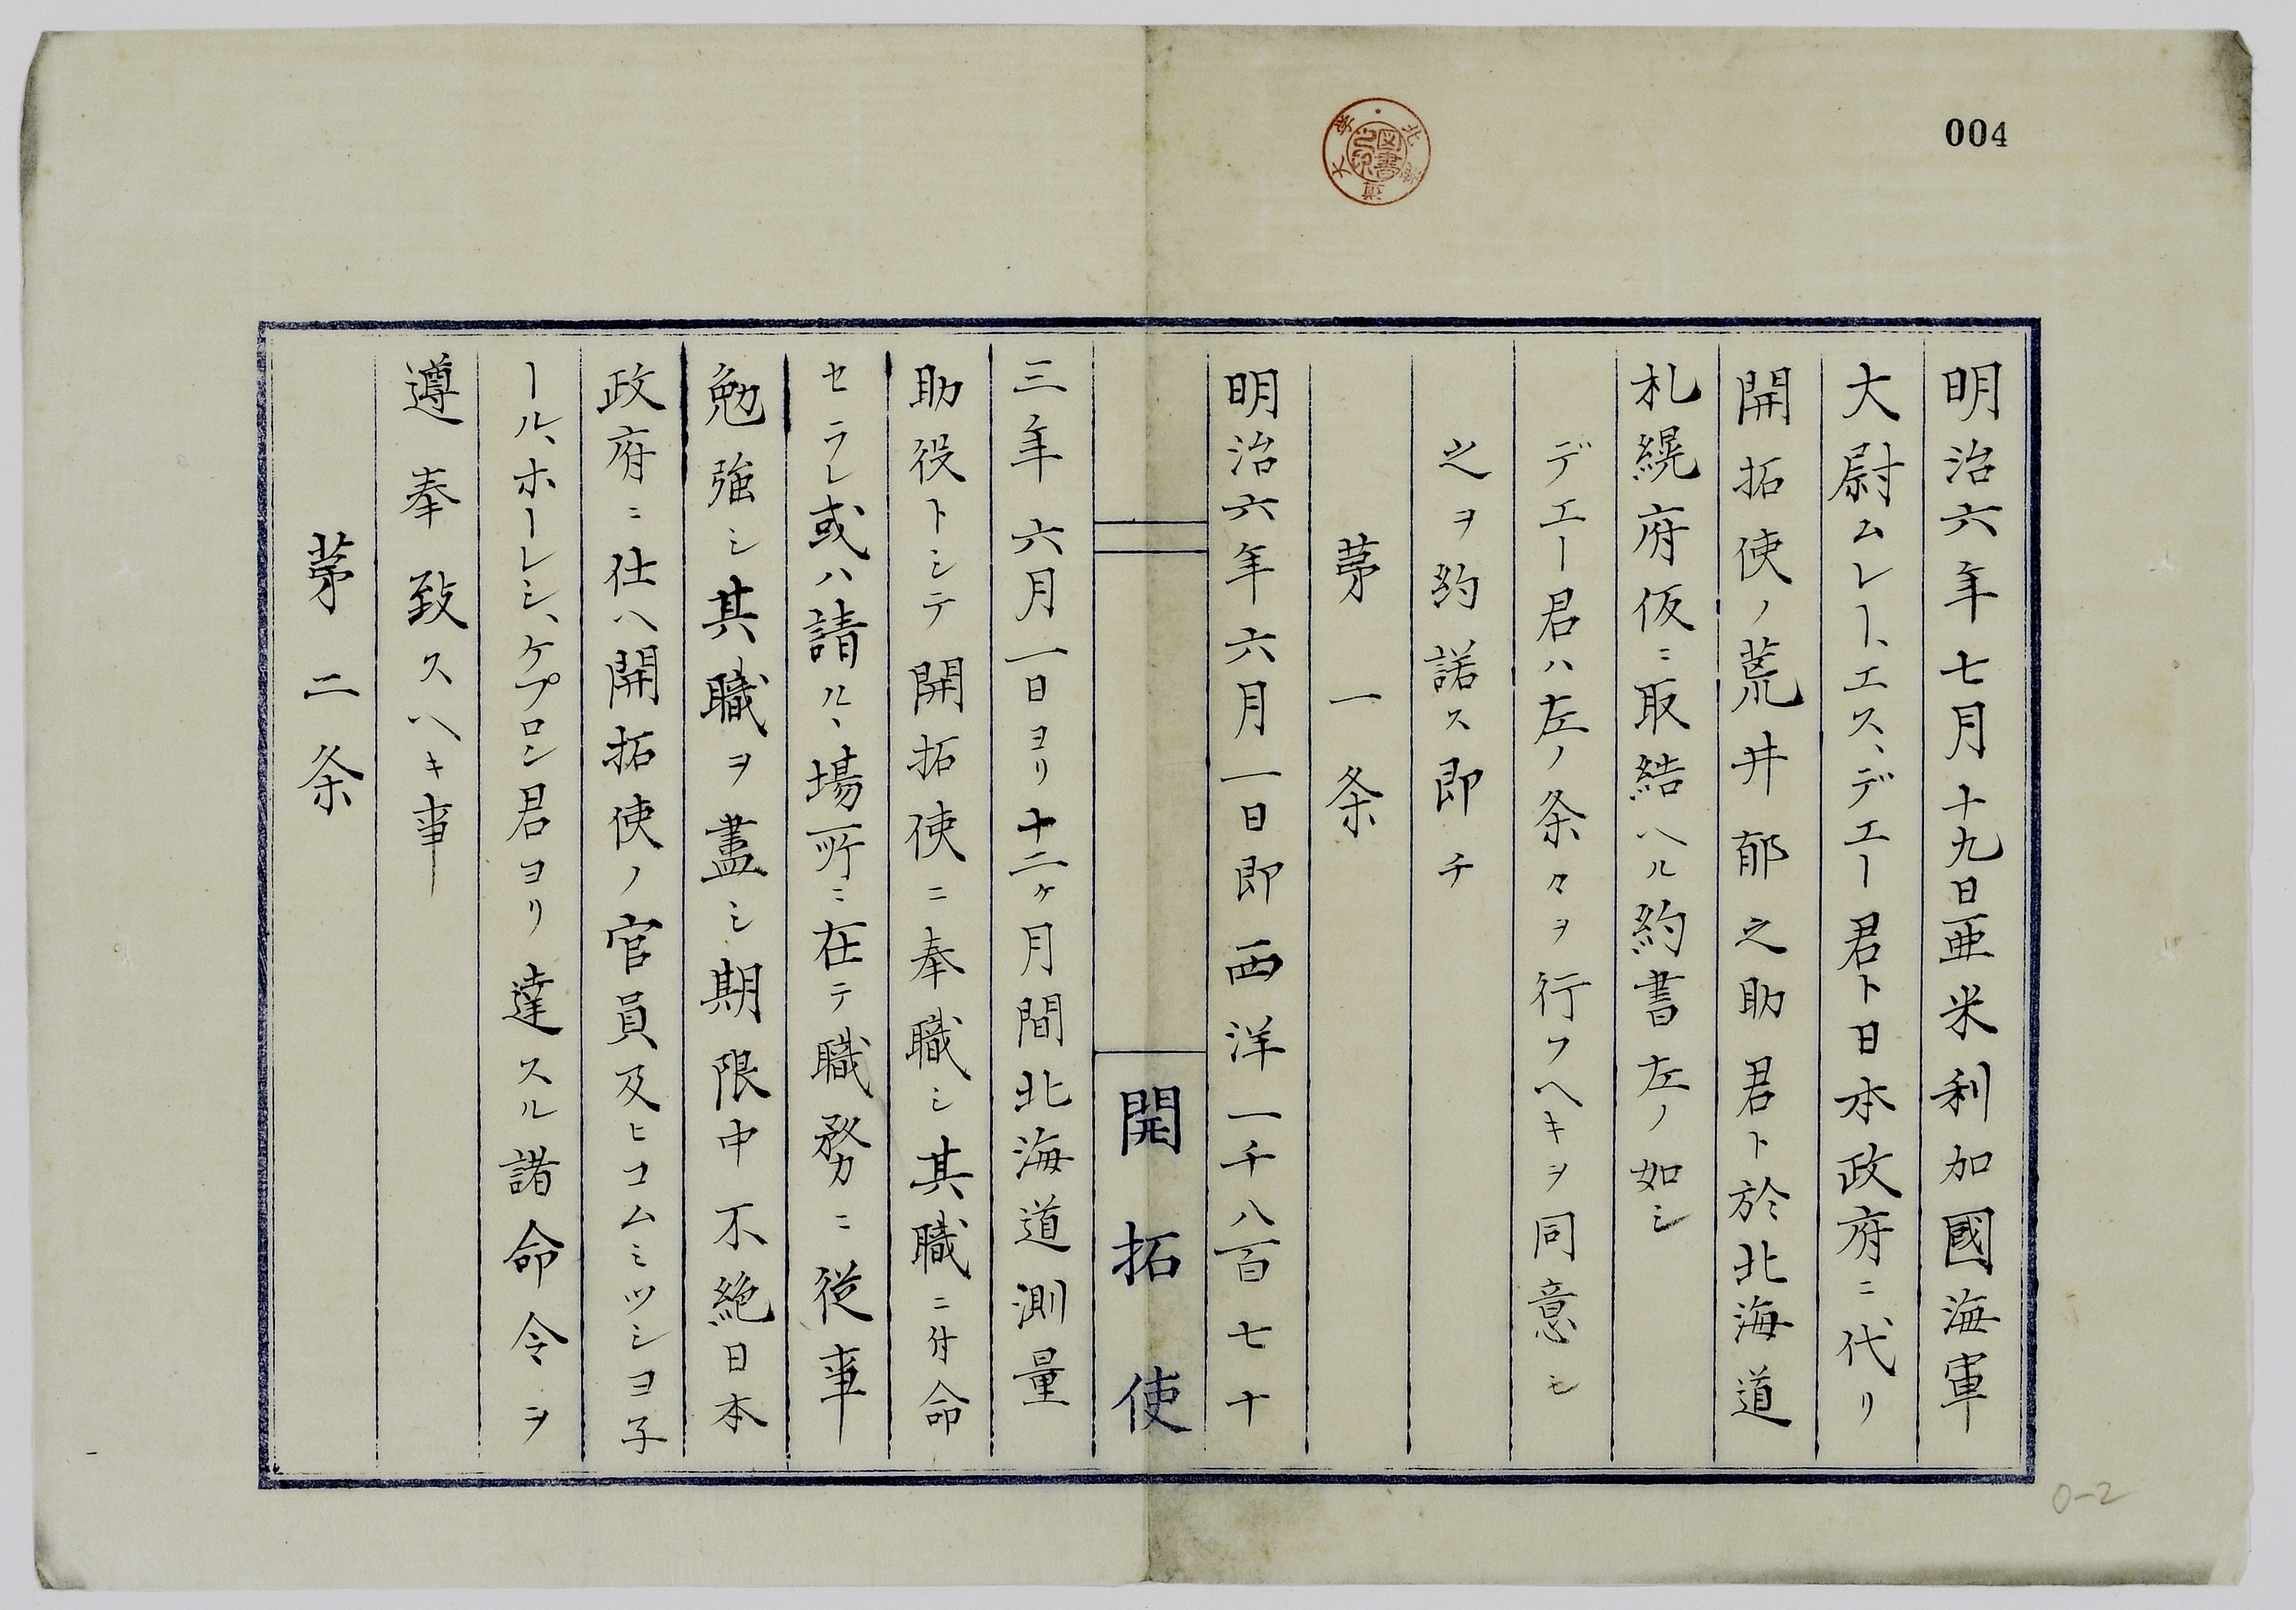 004
北海道大学
図書之印
明治六年七月十九日亜米利加國海軍
大尉ムレー、エス、デエー君ト日本政府ニ代リ
開拓使ノ荒井郁之助君ト於北海道
札縨府仮ニ取結ヘル約書左ノ如シ
デエー君ハ左ノ条々ヲ行フヘキヲ同意シ
之ヲ約諾ス即チ
苐一条
明治六年六月一日即西洋一千八百七十
開拓使
三年六月一日ヨリ十二ケ月間北海道測量
助役トシテ開拓使ニ奉職シ其職ニ付命
セラレ或ハ請ル、場所ニ在テ職務ニ従事
勉強シ其職ヲ盡シ期限中不絶日本
政府ニ仕ヘ開拓使ノ官員及ヒコムミツシヨ子
ール、ホーレシ、ケプロン君ヨリ達スル諸命令ヲ
遵奉致スヘキ事
苐二条
0-2